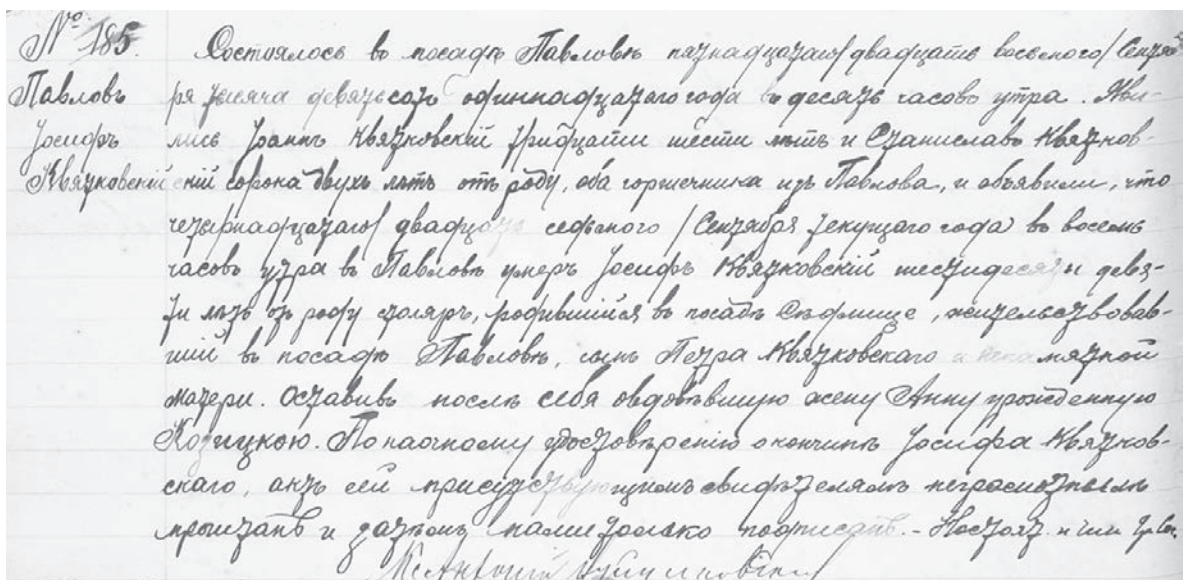 № 185.
Павловъ
Іосифъ
Квятковскій
Состоялось въ посадѣ Павловѣ пятнадцатаго/двадцать восьмого/Сентяб-
ря тысяча девятьсотъ одиннадцатаго года въ десять часовъ утра. Яви-
лись Іоаннъ Квятковскій тридцати шести лѣтъ и Станиславъ Квятков-
скій сорока двухъ лѣтъ отъ роду, оба горшечника изъ Павлова, и объявили, что
четырнадцатаго/двадцать седьмого/Сентября текущаго года въ восемь
часовъ утра въ Павловѣ умеръ Іосифъ Квятковскій шестидесяти девя-
ти лѣтъ отъ роду столяръ, родившійся въ посадѣ Сѣдлище, жительствовав-
шій въ посадѣ Павловѣ, сынъ Петра Квятковскаго и непамятной
матери. Оставивъ послѣ себя овдовѣвшую жену Анну урожденную
Козицкою. По наочному удостовѣренію о кончинѣ Іосифа Квятков-
скаго, актъ сей присутствующимъ свидѣтелямъ неграмотнымъ
прочитанъ и затѣмъ нами только подписанъ.-
Кс. Антоній